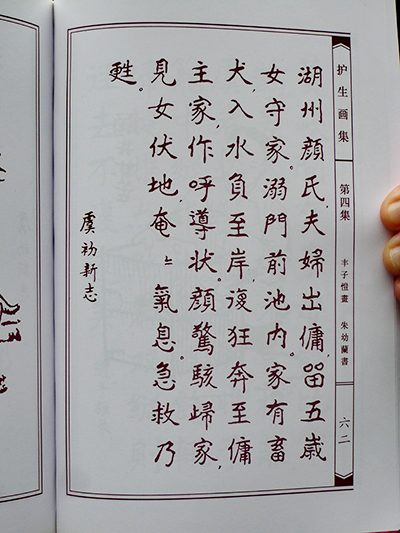 护生画集 第四集 丰子愷畫 朱幼蘭書 六二
湖州顔氏,夫婦出傭,留五歲
女守家。溺門前池内。家有畜
犬,入水負至岸,復狂奔至傭
主家,作呼導状。顔驚駭歸家,
見女伏地,奄〻氣息。急救乃
甦。
虞初新志